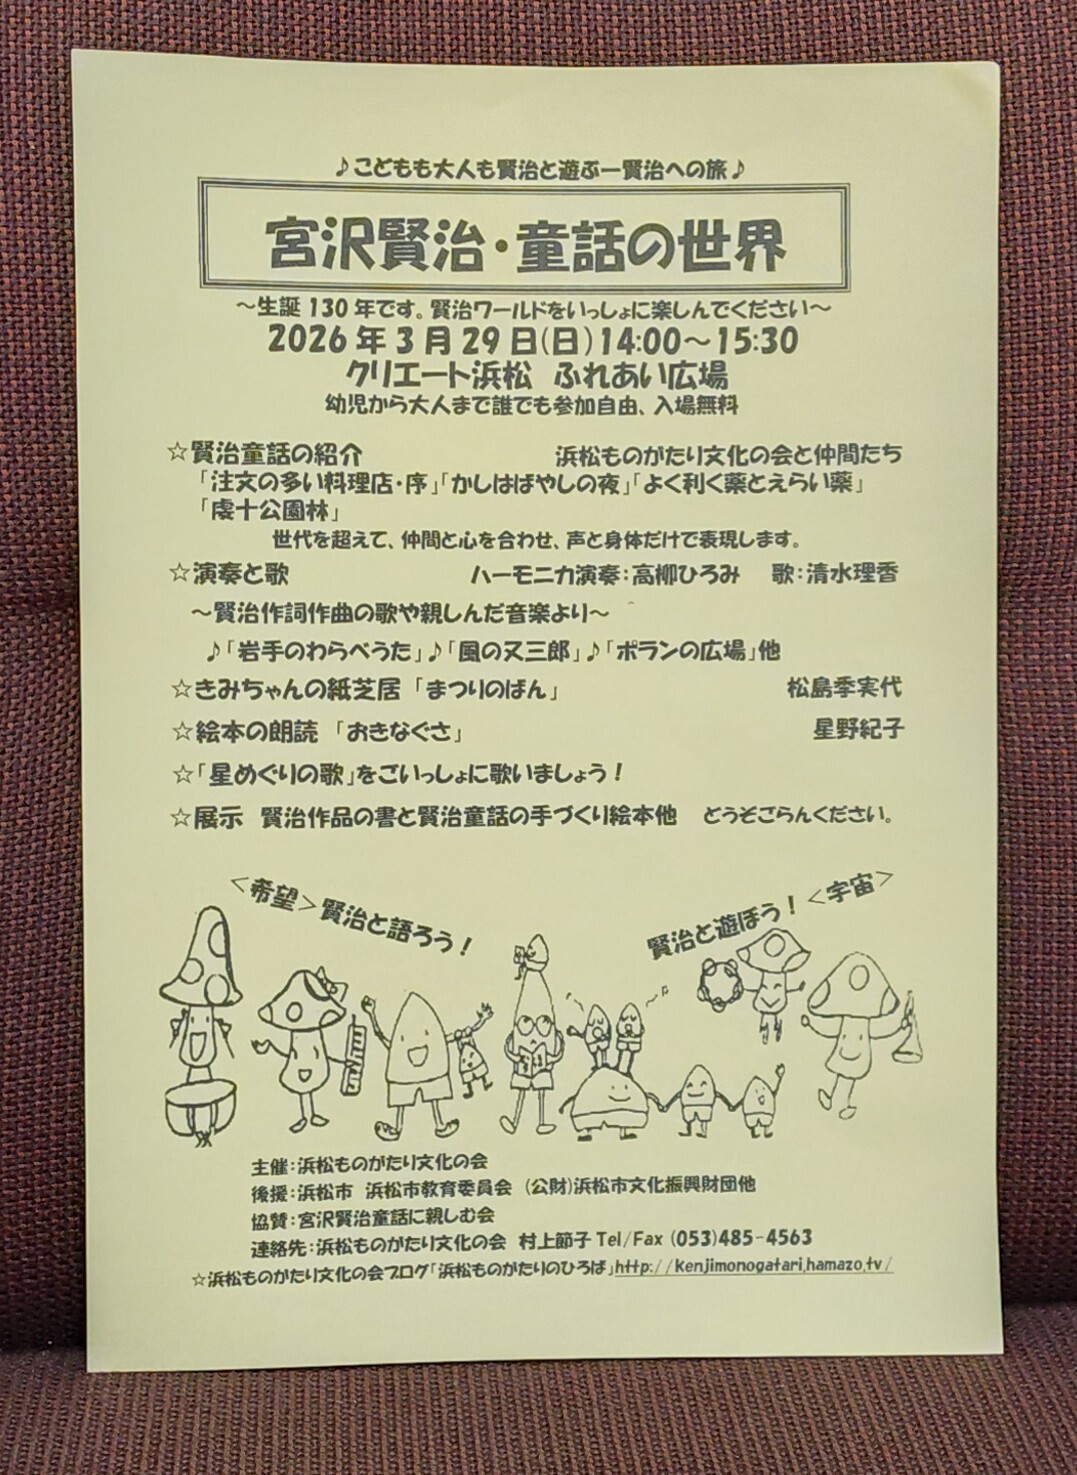 ♪こどもも大人も賢治と遊ぶー賢治への旅♪
宮沢賢治・童話の世界
～生誕130年です。賢治ワールドをいっしょに楽しんでください～
2026年3月29日(日)14:00～15:30
クリエート浜松 ふれあい広場
幼児から大人まで誰でも参加自由、入場無料
☆賢治童話の紹介 浜松ものがたり文化の会と仲間たち
「注文の多い料理店・序」「かしはばやしの夜」「よく利く薬とえらい薬」
「虔十公園林」
世代を超えて、仲間と心を合わせ、声と身体だけで表現します。
☆演奏と歌 ハーモニカ演奏：高柳ひろみ 歌：清水理香
～賢治作詞作曲の歌や親しんだ音楽より～
♪「岩手のわらべうた」♪「風の又三郎」♪「ポランの広場」他
☆きみちゃんの紙芝居「まつりのばん」 松島季実代
☆絵本の朗読「おきなぐさ」 星野紀子
☆「星めぐりの歌」をごいっしょに歌いましょう！
☆展示 賢治作品の書と賢治童話の手づくり絵本他 どうぞごらんください。
＜希望＞賢治と語ろう！
賢治と遊ぼう！＜宇宙＞
主催：浜松ものがたり文化の会
後援：浜松市 浜松市教育委員会 (公財)浜松市文化振興財団他
協賛：宮沢賢治童話に親しむ会
連絡先：浜松ものがたり文化の会 村上節子 Tel/Fax (053)485-4563
☆浜松ものがたり文化の会ブログ「浜松ものがたりのひろば」http://kenjimonogatari.hamazo.tv/